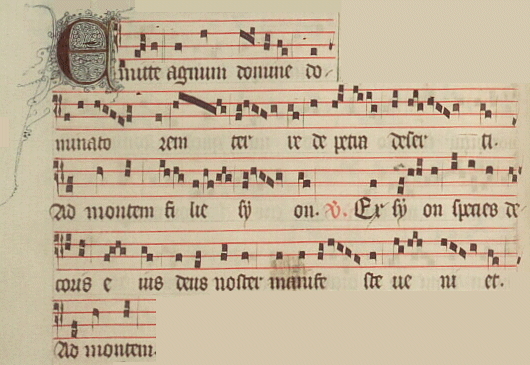 Emitte agnum domine do
minato rem ter re de petra deser ti
Ad montem fi lie sy on. V. Ex sy on species de
coris e ius deus noster manife ste ue ni et.
Ad montem.